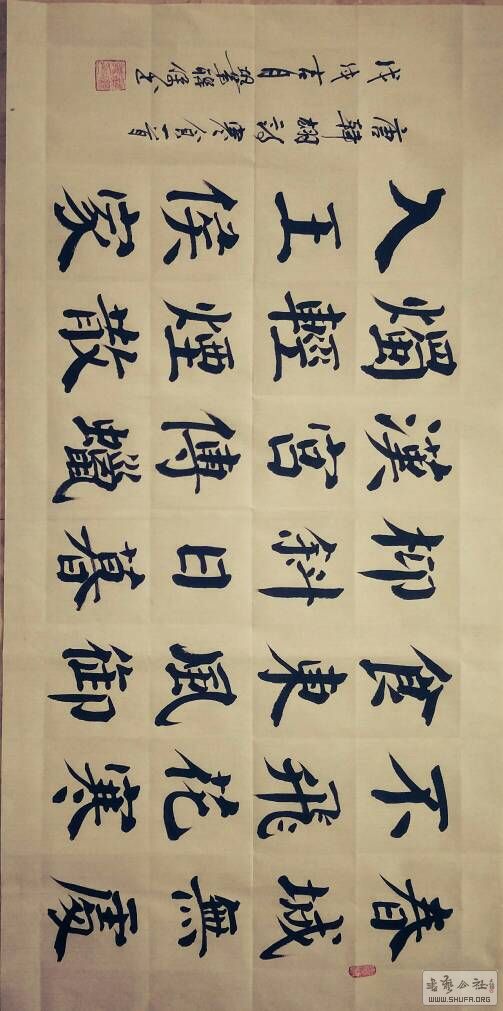 春城無處
不飛花寒
食東風御
柳斜日暮
漢宮傳蠟
燭輕煙散
入王侯家
唐韓翃詩寒食一首
戊戌吉月
WWW.SHUFA.ORG